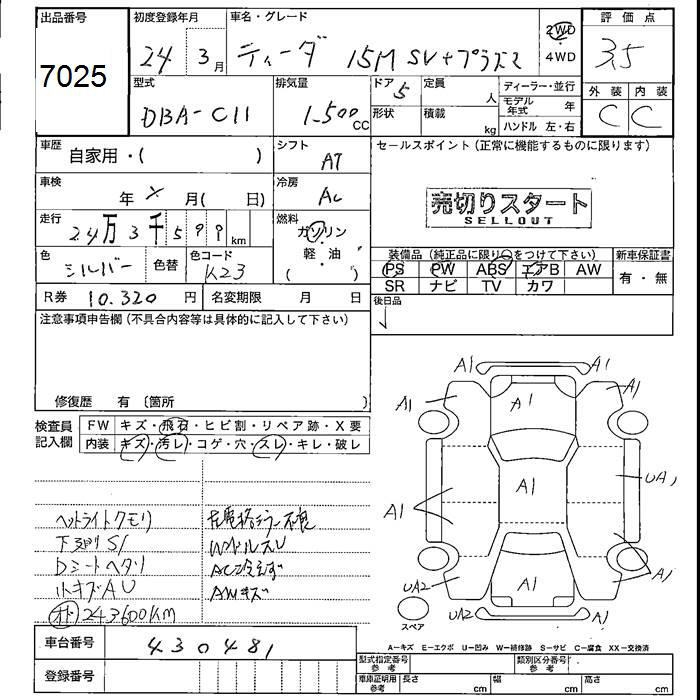 出品番号
7025
初度登録年月
24 3月
車名・グレード
ティーダ 15M SV+プラズマ
2WD
・
4WD
評価点
3.5
型式
DBA-C11
排気量
1-500cc
ドア
5
形状
定員
人
積載
kg
ディーラー・並行
モデル年式 年
ハンドル 左・右
外装 内装
C C
車歴
自家用・( )
シフト
AT
セールスポイント(正常に機能するものに限ります)
車検
年 × 月( 日)
冷房
AC
売切りスタート
SELLOUT
走行
24万3千599km
燃料
ガソリン
軽・油
( )
色
シルバー
色替
色コード
K23
装備品(純正品に限り○をつけて下さい)
新車保証書
PS PW ABS エアB AW
有・無
SR ナビ TV カワ
R券 10.320円
名変期限 月 日
後日品
注意事項申告欄(不具合内容等は具体的に記入して下さい)
修復歴 有 〔箇所 〕
検査員
記入欄
FW キズ・飛石・ヒビ割・リペア跡・X要
内装 キズ・汚レ・コゲ・穴・スレ・キレ・破レ
A1 A1
A1 A1 A1
A1 A1 UA1
UA2 A1 A1
UA2
スペア
ヘッドライトクモリ
下廻りS1
Dシートヘタリ
小キズAU
オド 243600KM
左電格ミラー不良
WドルスレU
AC冷えず
AWキズ
車台番号
430481
登録番号
A-キズ E-エクボ U-凹み W-補修跡 S-サビ C-腐食 XX-交換済
型式指定番号
参考
類別区分番号
参考
車庫証明用
参考
長さ cm
幅 cm
高さ cm